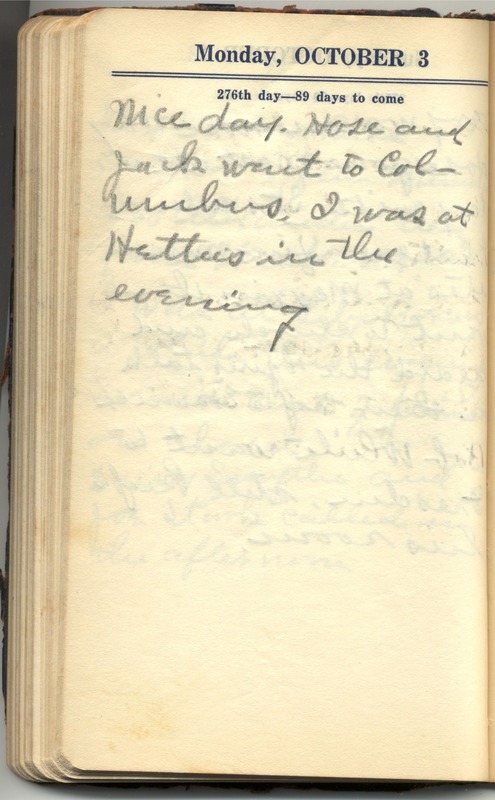 Monday, OCTOBER 3
276th day—89 days to come
Nice day. Hose and
Jack went to Col-
umbus. I was at
Hetties in the
evening